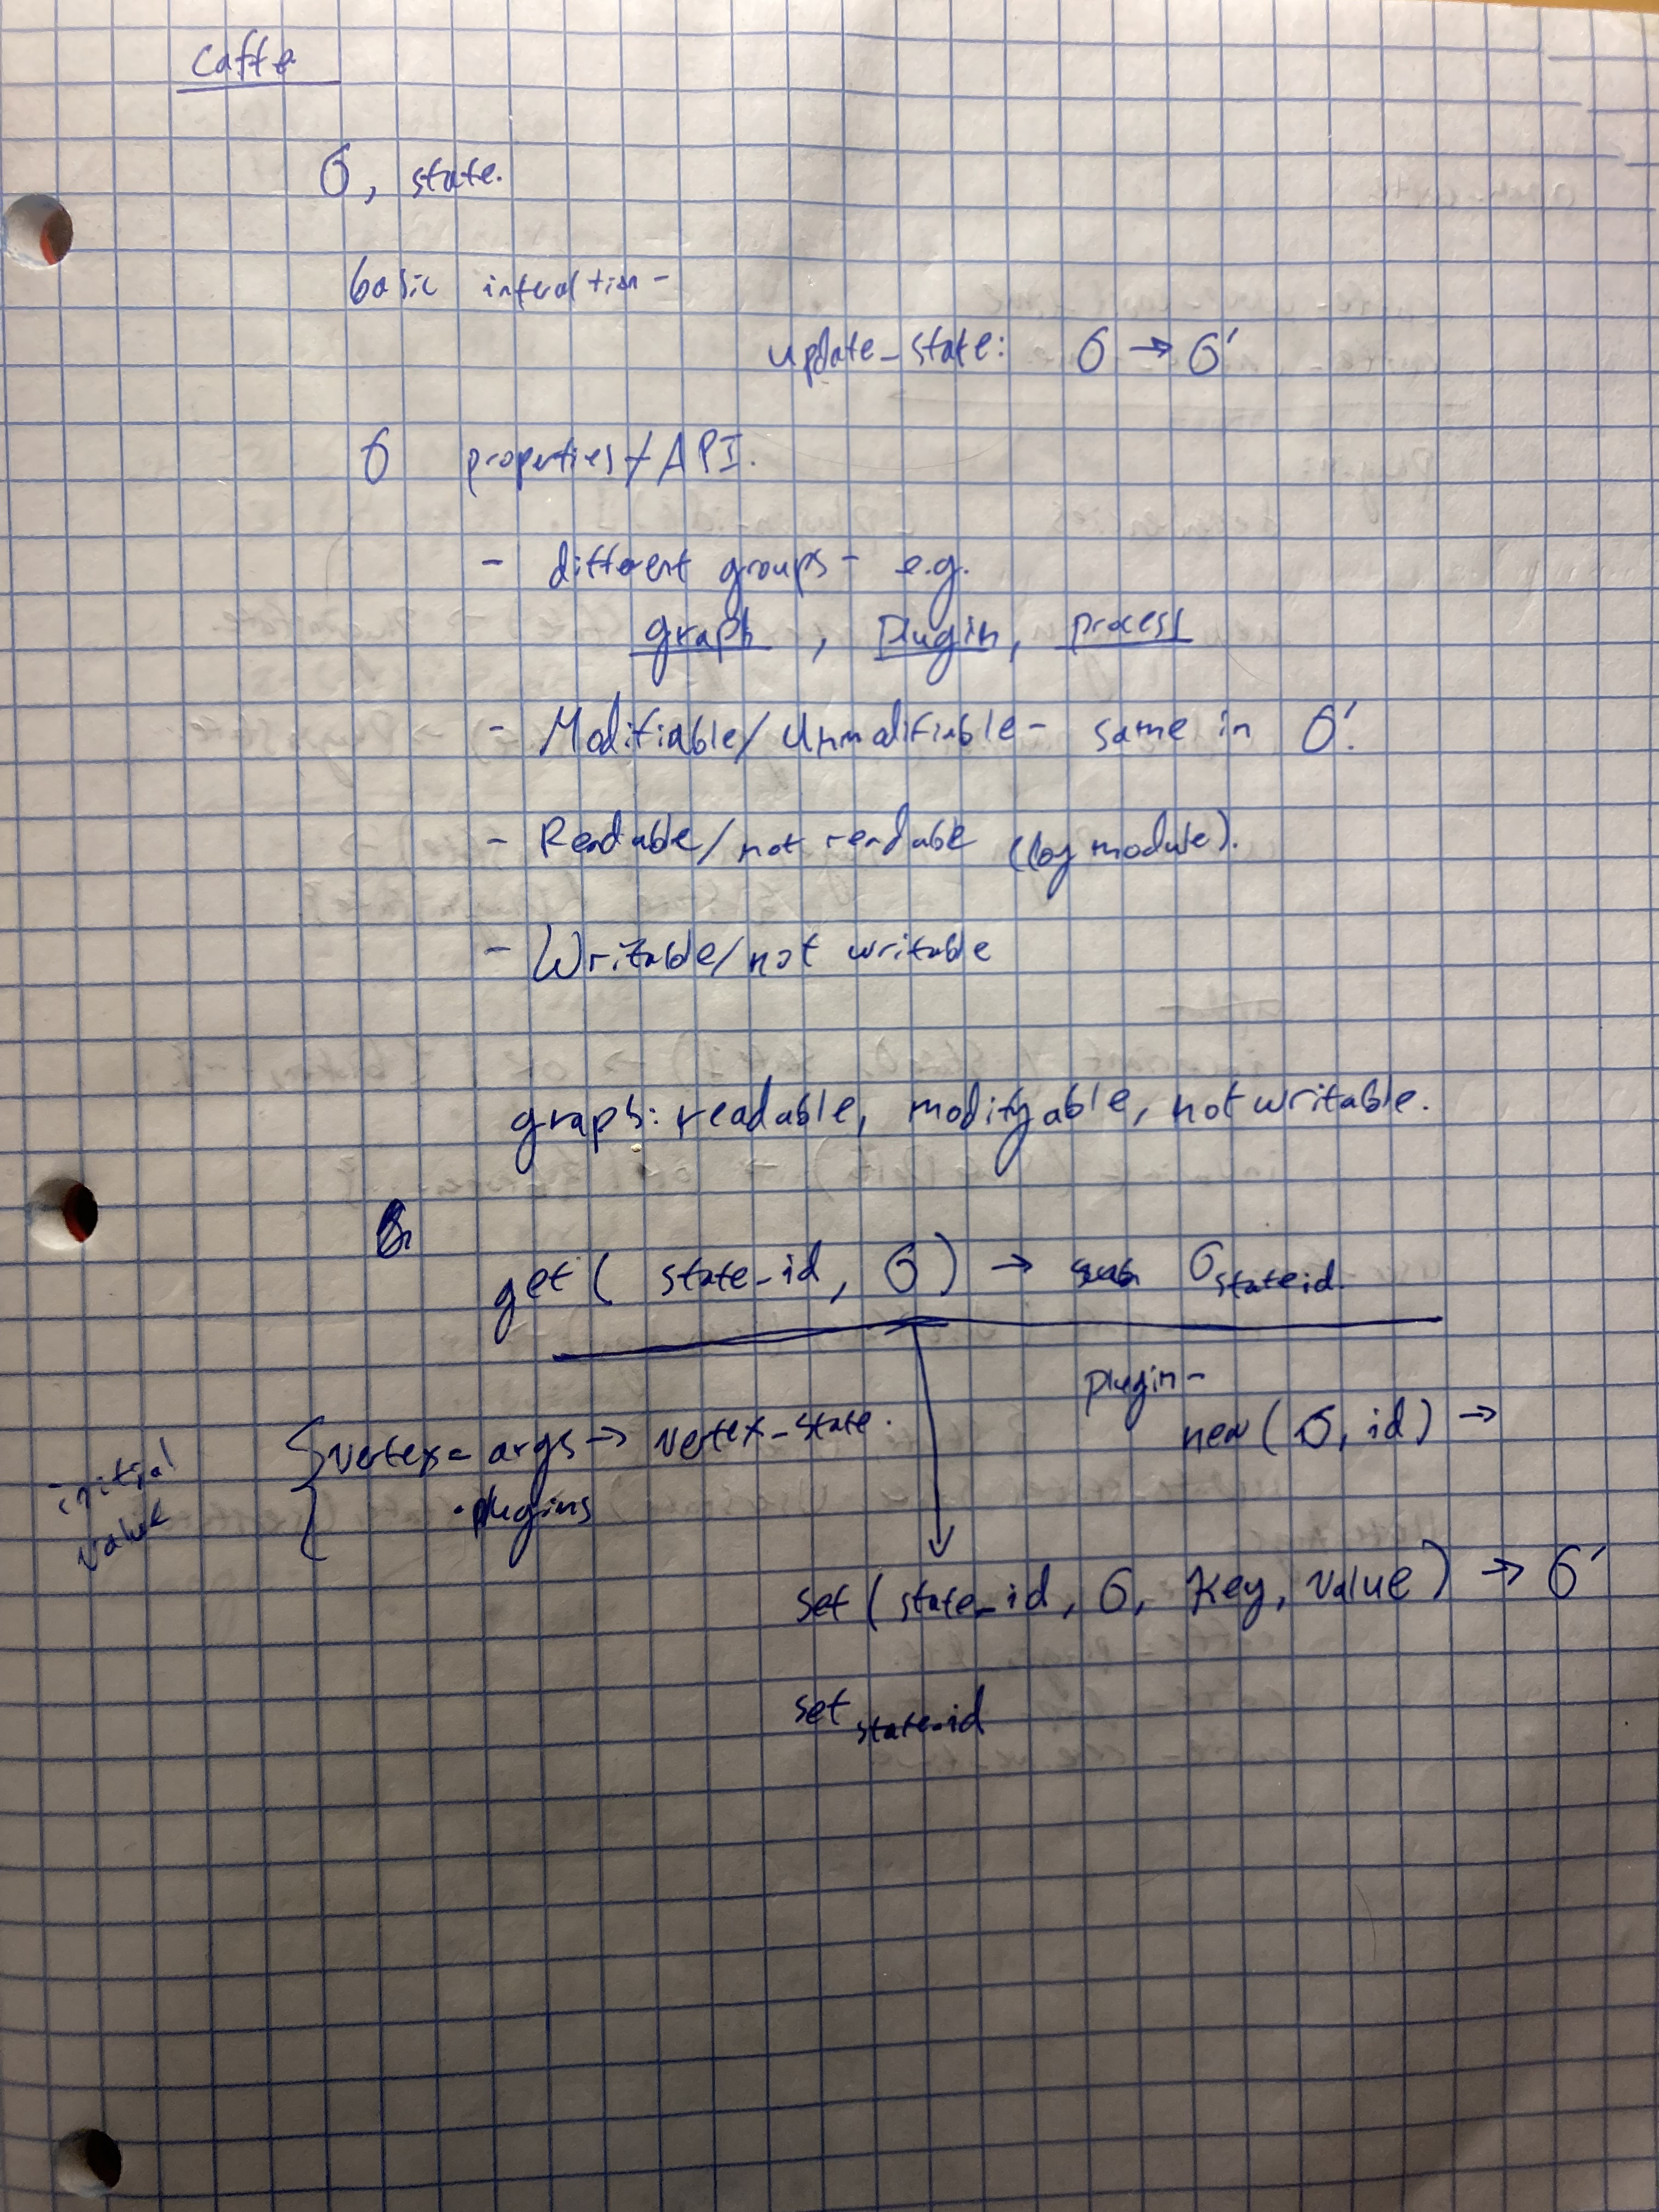 Caffe
σ, state.
basic interaction -
update_state: σ → σ'
σ properties / API.
- different groups - e.g.
graph, plugin, process
- Modifiable/Unmodifiable - same in σ'.
- Readable/not readable (log module).
- Writable/not writable
graph: readable, modifyable, not writable.
get( state_id, σ) → σ stateid.
plugin -
new(σ, id) →
initial value
{ vertex - args → vertex_state.
· plugins
set( state_id, σ, key, value) → σ'
set state-id